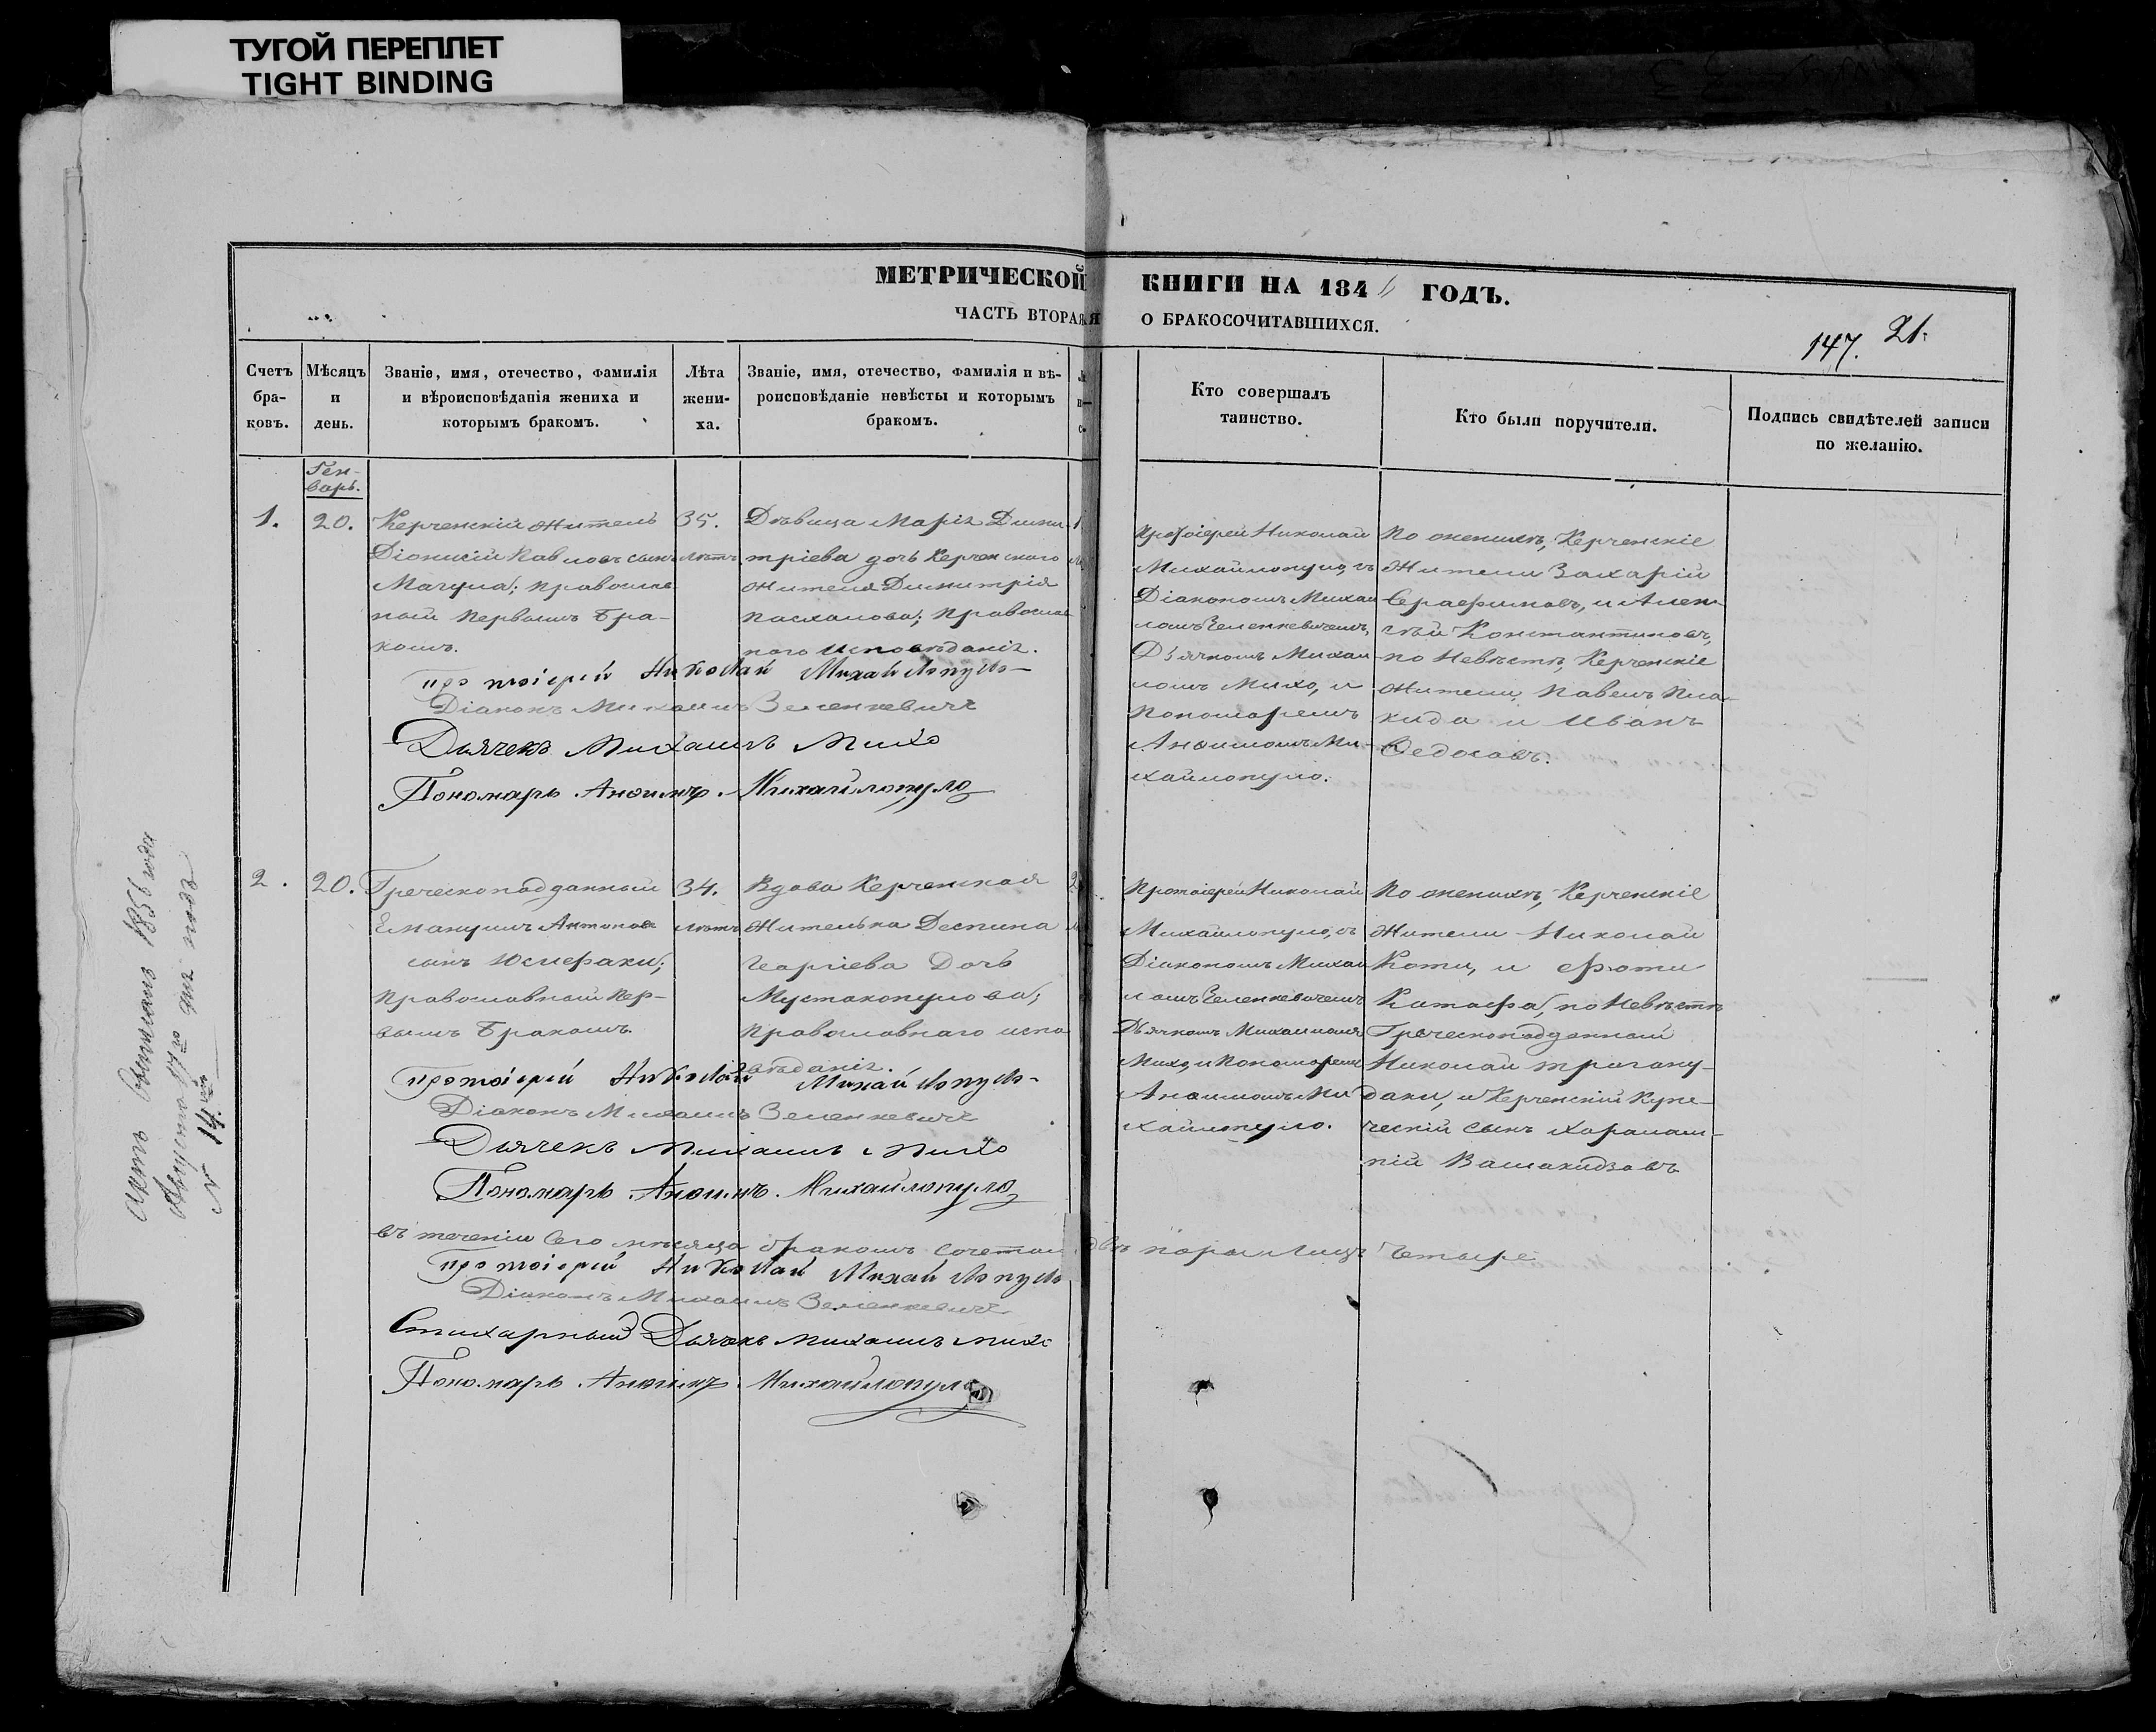 ТУГОЙ ПЕРЕПЛЕТ
TIGHT BINDING
МЕТРИЧЕСКОЙ КНИГИ НА 184 ГОДЪ.
ЧАСТЬ ВТОРАЯ О БРАКОСОЧИТАВШИХСЯ.
147. 21.
Счетъ бра-ковъ.
Мѣсяцъ и день.
Званіе, имя, отечество, фамилія и вѣроисповѣданія жениха и которымъ бракомъ.
Лѣта жени-ха.
Званіе, имя, отечество, фамилія и вѣ-роисповѣданіе невѣсты и которымъ бракомъ.
Кто совершалъ таинство.
Кто были поручители.
Подпись свидѣтелей записи по желанію.
Ген-
варь.
1.
20.
Керченскій житель
Діонисій Павловъ сынъ
православ
ный первымъ бра-
комъ.
35.
лѣтъ
Дѣвица Марія Дими-
тріева дочь Керченскаго
жителя Димитрія
Пасхалова; православ
наго исповѣданія.
Протоіерей Николай
Михайлопуло, съ
Діакономъ Михаи
ломъ Зеленкевичемъ,
Дьячкомъ Михаи
ломъ Михо, и
Пономаремъ
Анѳимомъ Ми-
хайлопуло.
По женихѣ, Керченскіе
жители Захарій
Серафимовъ, и Алек-
сѣй Константиновъ,
по Невѣстѣ, Керченскіе
жители, Павелъ Пла-
кида и Иванъ
Ѳедосовъ.
Протоіерей Николай Михайлопуло
Діаконъ Михаилъ Зеленкевичъ
Дьячекъ Михаилъ Михо
Пономарь Анѳимъ Михайлопуло
2.
20.
Греческоподданный
Емануилъ Антоновъ
сынъ
православный пер-
вымъ бракомъ.
34.
лѣтъ
Вдова Керченская
жителька Деспина
Георгіева дочь
Мустакопулова;
православнаго испо
вѣданія.
Протоіерей Николай
Михайлопуло, съ
Діакономъ Михаи
ломъ Зеленкевичемъ
Дьячкомъ Михаиломъ
Михо, и Пономаремъ
Анѳимомъ Ми
хайлопуло.
По женихѣ, Керченскіе
жители Николай
Коти, и Фоти
по Невѣстѣ
Греческоподданный
Николай Трагану-
даки, и Керченскій Купе-
ческій сынъ Харалам-
пій
Протоіерей Николай Михайлопуло
Діаконъ Михаилъ Зеленкевичъ
Дьячекъ Михаилъ Михо
Пономарь Анѳимъ Михайлопуло
въ теченіи сего мѣсяца бракомъ сочетан двѣ пары лицъ четыре
Протоіерей Николай Михайлопуло
Діаконъ Михаилъ Зеленкевичъ
Стихарный Дьячекъ Михаилъ Михо
Пономарь Анѳимъ Михайлопуло
1856 года
Августа 17го дня
N 14